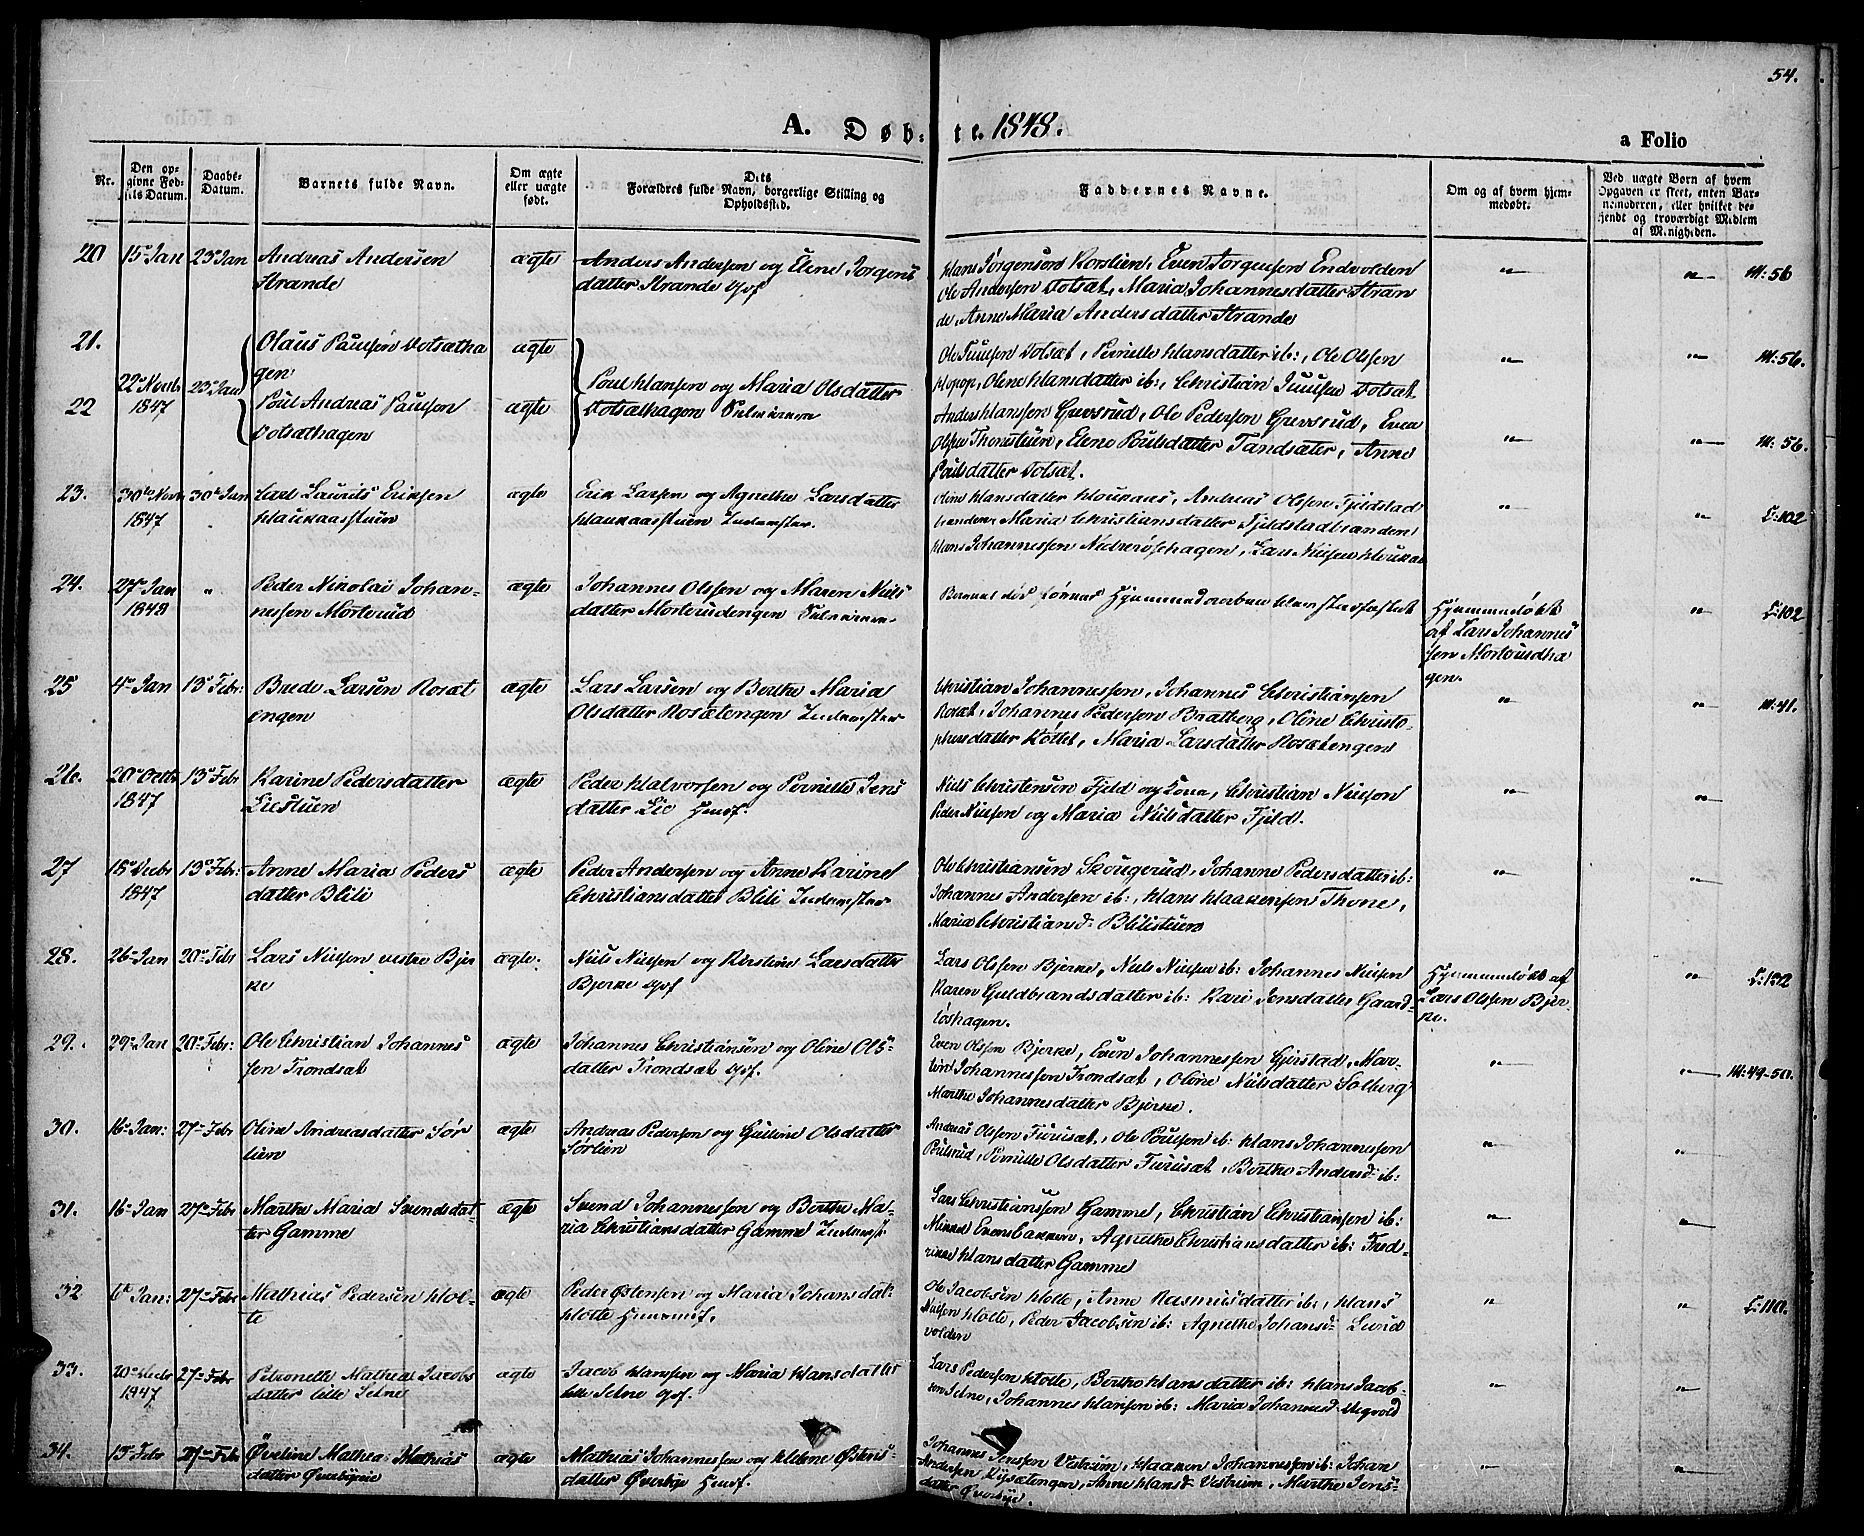 54.
A. Døb- te. 1848.
a Folio
Nr.
Den op-
givne Fød-
sels Datum.
Daabs-
Datum.
Barnets fulde Navn.
Om ægte
eller uægte
født.
Dets
Forældres fulde Navn, borgerlige Stilling og
Opholdssted.
Faddernes Navne.
Om og af hvem hjem-
medøbt.
Ved uægte Børn af hvem
Opgaven er skeet, enten Bar-
nemoderen, eller hvilket be-
kjendt og troværdigt Medlem
af Menigheden.
20 15de Jan 23de Jan Andreas Andersen
Strande
ægte
Anders Andersen og Elene Jørgens
datter Strande Gbf
Hans Jørgensen Korslien, Even Jørgensen Endvolden
Ole Andersen Votsat, Maria Johannesdatter Stran
de, Anne Maria Andersdatter Strande
" " M:56
21. Olaus Paulsen Votsætha
gen
ægte
22 22de Novbr 1847 23de Jan
Poul Andreas Paulsen
Votsæthagen
ægte
Poul Hansen og Maria Olsdatter
Votsæthagen
Ole Paulsen Votsat, Pernille Hansdatter ib:, Ole Olsen
Kopop, Oline Hansdatter ib:, Christian Juulsen Votsat
" " M:56.
Anders Hansen Grevsrud, Ole Pedersen Grevsrud, Even
Olsen Thonstuen, Elene Poulsdatter Tandsæter, Anne
Poulsdatter Votsat.
" " M:56.
23. 30te Novbr 1847 30te Jan
Carl Laurits Eriksen
Haukaasstuen
ægte
Erik Larsen og Agnethe Larsdatter
Haukaasstuen Inderster.
Oline Hansdatter Houkaas, Andreas Olsen Fjeldstad
branden, Maria Christiansdatter Fjeldstadbranden
Hans Johannessen Nedrerøshagen, Lars Nielsen Houkaas
" " L:102
24. 27de Jan 1848 "
Peder Nikolai Johan-
nessen Morterud
ægte
Johannes Olsen og Maren Niels
datter Morterudengen
Barnet
Hjemmedøbt
af Lars Johannes
sen Morterudha
gen.
" L:102
25 4de Jan 13de Febr:
Brede Larsen Rosæt
engen
ægte
Lars Larsen og Berthe Maria
Olsdatter Rosætengen Inderster
Christian Johannessen, Johannes Christiansen
Rosæt, Johannes Pedersen Bratberg, Oline Christo-
phersdatter Kottet, Maria Larsdatter Rosætengen
" " M:41.
26. 20de Octbr 1847 13de Febr
Karine Pedersdatter
Liestuen
ægte
Peder Halvorsen og Pernille Jens
datter Lie Huusf.
Niels Christensen Fjeld og Kone, Christian Nielsen
Peder Nielsen og Maria Nielsdatter Fjeld.
" "
27 15de Decbr 1847 13de Febr:
Anne Maria Peders
datter Blili
ægte
Peder Andersen og Anne Karine
Christiansdatter Blili Inderster
Ole Christiansen Skougerud, Johanne Pedersdatter ib:
Johannes Andersen ib:, Hans Haakensen Thone,
Maria Christiansd: Blilistuen
" "
28. 26de Jan 20de Febr
Lars Nielsen vestre Bjer
ke
ægte.
Niels Nielsen og Kirstine Larsdatter
Bjerke Gbf
Lars Olsen Bjerke, Niels Nielsen ib: Johannes Nielsen
Karen Guldbrandsdatter ib: Kari Jensdatter Gaard-
løshagen.
Hjemmedøbt af
Lars Olsen Bjer-
ke.
" L:132
29. 29de Jan 20de Febr:
Ole Christian Johannes
sen Trondsat
ægte
Johannes Christiansen og Oline Ols-
datter Trondsat Gbf.
Even Olsen Bjerke, Even Johannessen Gjerstad, Mar-
tin Johannessen Trondsat, Oline Nielsdatter Solberg
Marthe Johannesdatter Bjerke.
" " M:49-50.
30. 16de Jan: 27de Febr
Oline Andreasdatter Sør
lien
ægte
Andreas Pedersen og Guline Olsdatter
Sørlien
Andreas Olsen Furusat, Ole Poulsen ib: Hans Johannessen
Poulsrud, Pernille Olsdatter Furusat, Berthe Andersd: ib:
" "
31. 16de Jan 27de Febr
Marthe Maria Svendsdat-
ter Gamme
ægte
Svend Johannessen og Berthe Ma-
ria Christiansdatter Gamme Inderst:
Lars Christianssen Gammel, Christian Christiansen ib:
Mikkel Evensbakken, Agnethe Christiansdatter ib: Fred-
rikke Hansdatter Gamme
" "
32 6te Jan: 27de Febr
Mathias Pedersen Hol-
te
ægte
Peder Østensen og Maria Johansdat:
Holte Huusmf.
Ole Jacobsen Holte, Anne Rasmusdatter ib:, Hans
Nielsen Holte, Peder Jacobsen ib: Agnethe Johansd: Lund
volden
" " L:110.
33. 20de Decbr 1847 27de Febr
Petronelle Mathea Jacobs
datter lille Selne
ægte
Jacob Hansen og Maria Hansdatter
lille Selne Gbf.
Lars Pedersen Holte, Berthe Hansdatter ib: Hans Jacob-
sen Selne, Johannes Hansen ib: Maria Johannesd: Megvold
" "
34. 13de Febr 27de Febr
Øveline Mathea Mathias
datter Øverbyeie
ægte
Mathias Johannessen og Helene Østens-
datter Øverbye Huusf.
Johannes Jenssen Vestrum, Haaken Johannessen ib: Johan
Andersen Kjosætengen, Anne Hansd: Vestrum, Marthe Jens-
datter Øverbye.
" "